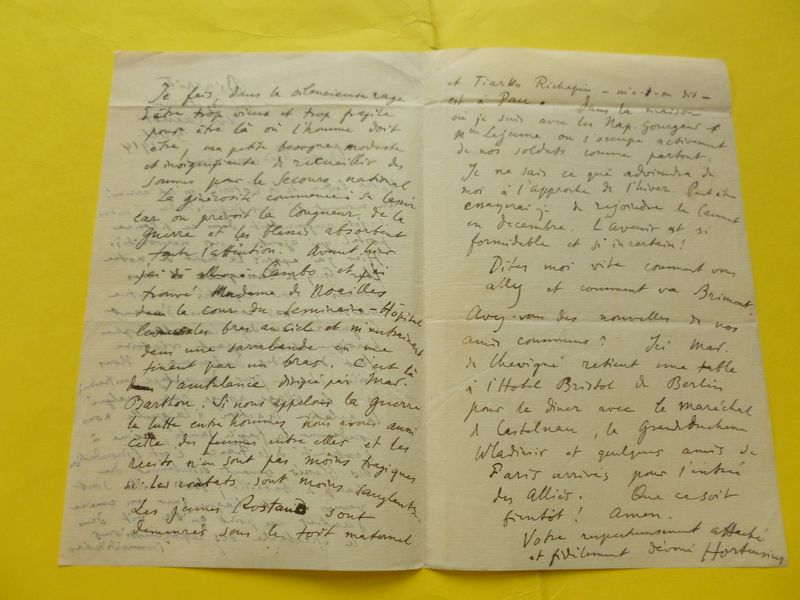 Je fais, dans la silencieuse rage
d'être trop vieux et trop fragile
pour être là où l'homme doit
être, ma petite besogne modeste
et insignifiante de recueillir des
sommes pour le Secours national
La générosité commence à se lasser
car on prévoit la longueur de la
guerre et les blessés absorbent
toute l'attention. Avant hier
j'ai été à Cambo et j'ai
trouvé Madame de Noailles
dans la cour du Séminaire-Hôpital
les bras au ciel et m'entraînant
dans une sarabande en me
tenant par un bras. C'est là
l'ambulance dirigée par Mad.
Barthou. Si nous appelons la guerre
la lutte entre hommes nous avons aussi
celle des femmes entre elles et les
récits n'en sont pas moins tragiques
si les combats sont moins sanglants.
Les jeunes Rostand sont
demeurés sous le toit maternel
et Tiarko Richepin - m'a-t-on dit -
est à Pau. Dans la maison
où je suis avec les Nap. Gourgaud et
Mme Legrume on s'occupe activement
de nos soldats comme partout.
Je ne sais ce qui adviendra de
moi à l'approche de l'hiver. Peut-être
essayerai-je de rejoindre le Cannet
en décembre. L'avenir est si
formidable et si incertain!
Dites moi vite comment vous
allez et comment va Brimont.
Avez-vous des nouvelles de nos
amis communs? Ici Mad.
de Chevigné retient une table
à l'Hotel Bristol de Berlin
pour le dîner avec le Maréchal
de Castelnau, la Grande Duchesse
Wladimir et quelques amis de
Paris arrivés pour l'entrée
des Alliés. Que ce soit
bientôt! Amen.
Votre respectueusement attaché
et fidèlement dévoué Hortensius